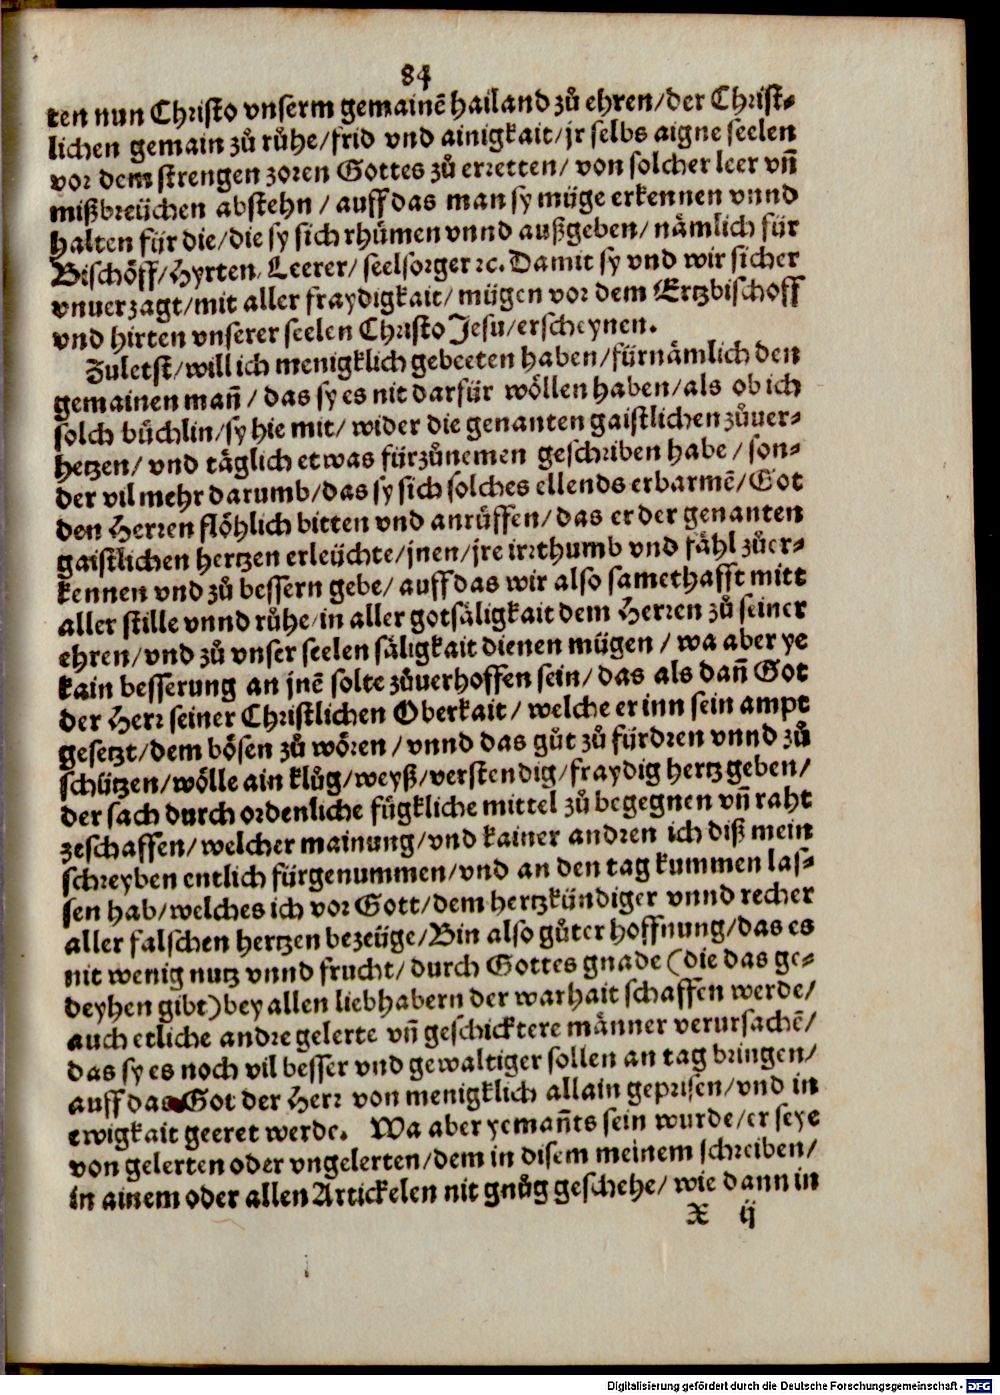 84
ten nun Christo vnserm gemainē hailand zů ehren/der Christ-
lichen gemain zů růhe/frid vnd ainigkait/jr selbs aigne seelen
vor dem strengen zoren Gottes zů erretten/ von solcher leer vñ
mißbreüchen abstehn / auff das man sy müge erkennen vnnd
halten für die/die sy sich rhümen vnnd außgeben/ nämlich für
Bischöff/Hyrten/ Leerer/ seelsorger ꝛc. Damit sy vnd wir sicher
vnuerzagt/mit aller fraydigkait/ mügen vor dem Ertzbischoff
vnd hirten vnserer seelen Christo Jesu/erscheynen.
Zuletst/will ich menigklich gebeeten haben/fürnämlich den
gemainen mañ / das sy es nit darfür wöllen haben/als ob ich
solch büchlin/sy hie mit/ wider die genanten gaistlichen zůuer-
hetzen/ vnd täglich etwas fürzůnemen geschriben habe / son-
der vil mehr darumb/das sy sich solches ellends erbarmē/Got
den Herren flöhlich bitten vnd anrüffen/das er der genanten
gaistlichen hertzen erleüchte/jnen/jre irrthumb vnd fähl zůer-
kennen vnd zů bessern gebe/ auff das wir also samethafft mitt
aller stille vnnd růhe/in aller gotsäligkait dem Herren zů seiner
ehren/vnd zů vnser seelen säligkait dienen mügen / wa aber ye
kain besserung an jnē solte zůuerhoffen sein/das als dañ Got
der Herr seiner Christlichen Oberkait/ welche er inn sein ampt
gesetzt/dem bösen zů wören /vnnd das gůt zů fürdren vnnd zů
schützen/wölle ain klůg/weyß/verstendig/fraydig hertz geben/
der sach durch ordenliche fügkliche mittel zů begegnen vñ raht
zeschaffen/welcher mainung/vnd kainer andren ich diß mein
schreyben entlich fürgenummen/vnd an den tag kummen las-
sen hab/welches ich vor Gott/dem hertzkündiger vnnd recher
aller falschen hertzen bezeüge/Bin also gůter hoffnung/das es
nit wenig nutz vnnd frucht/durch Gottes gnade (die das ge-
deyhen gibt)bey allen liebhabern der warhait schaffen werde/
auch etliche andre gelerte vñ geschicktere männer verursachē/
das sy es noch vil besser vnd gewaltiger sollen an tag bringen/
auff das Got der Herr von menigklich allain geprisen/vnd in
ewigkait geeret werde. Wa aber yemañts sein wurde/er seye
von gelerten oder vngelerten/dem in disem meinem schreiben/
in ainem oder allen Artickelen nit gnůg geschehe/ wie dann in
X ij
Digitalisierung gefördert durch die Deutsche Forschungsgemeinschaft - DFG